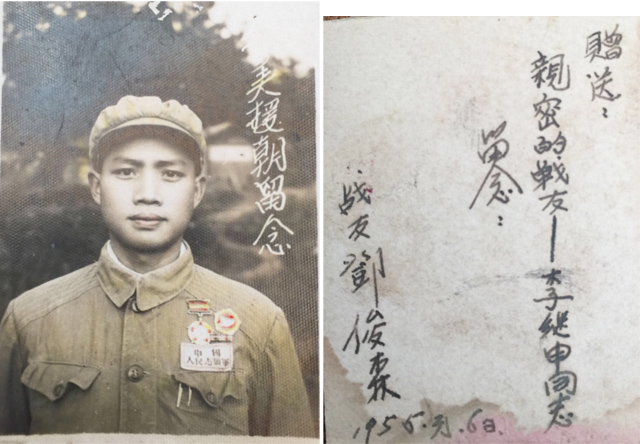 美援朝留念
中國
人民志願軍
贈送：
親密的戰友—李继申同志
留念：
战友鄧俊森
1955.元.6日